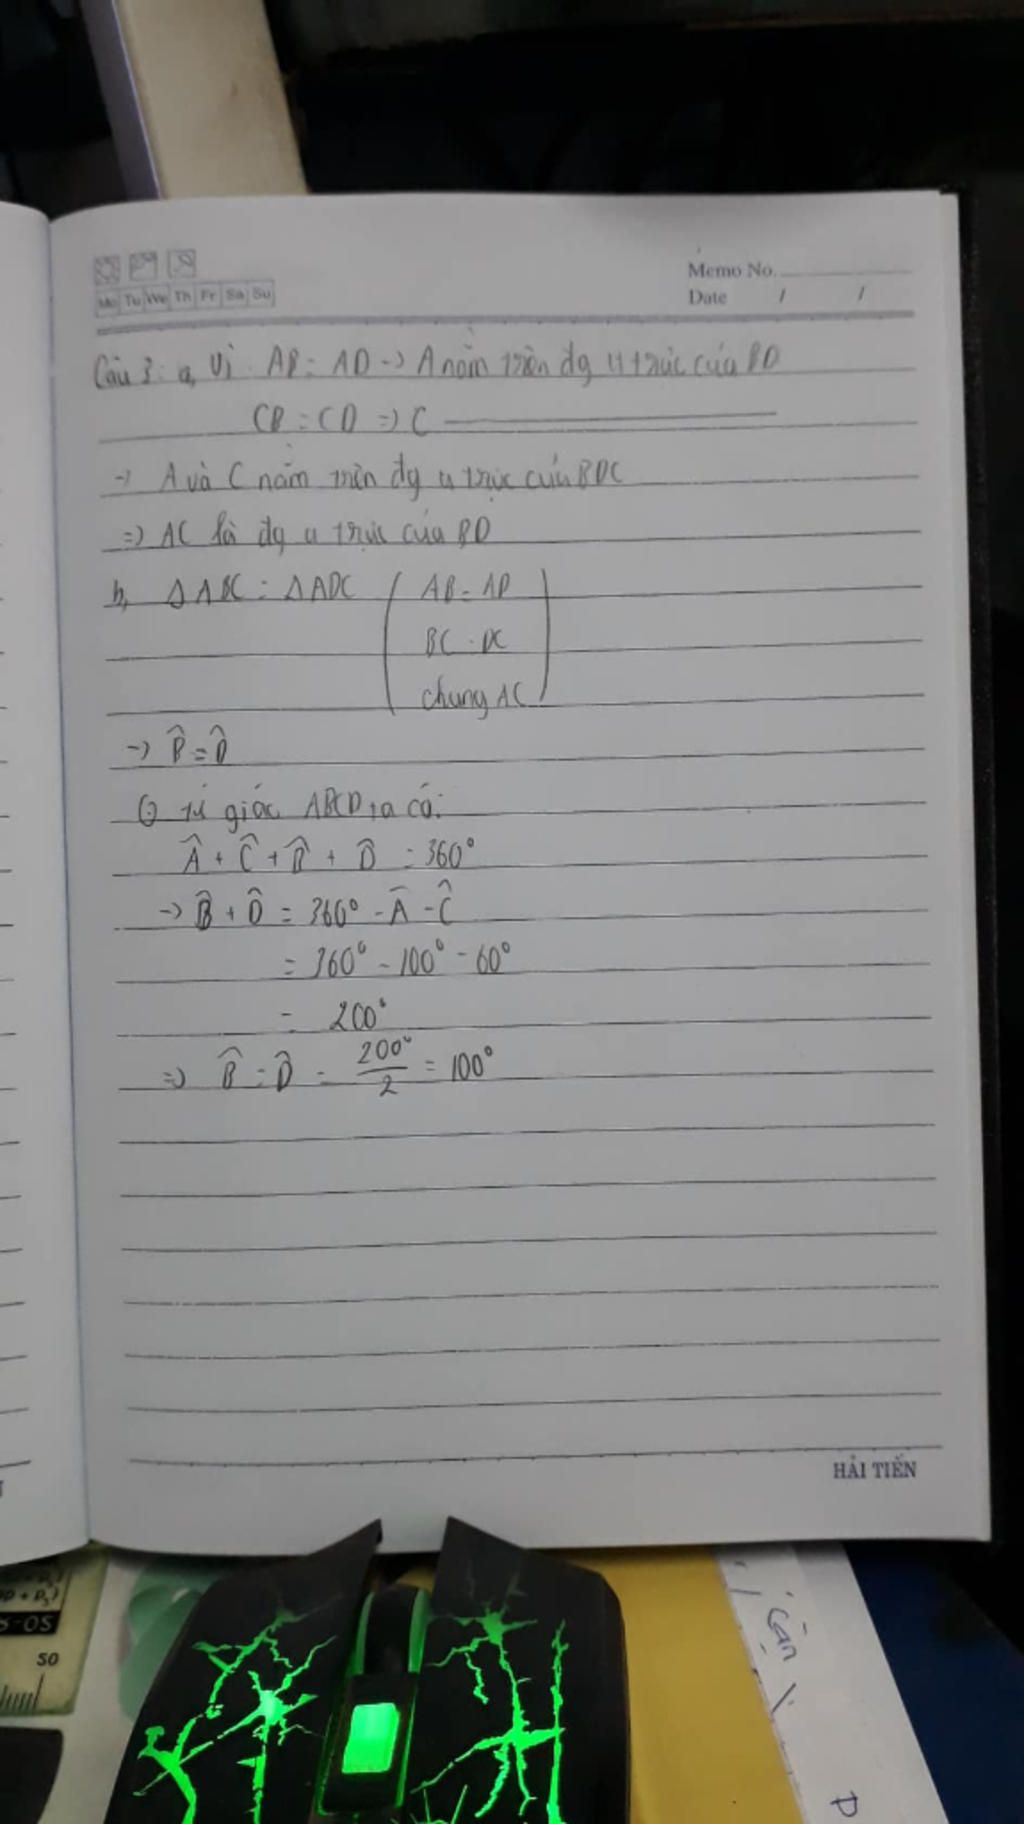 Mo Tu We Th Fr Sa Su
Memo No.
Date / /
Câu 3: a, Vì AB = AD -> A nằm trên đg tt trực của BD
CB = CD => C
-> A và C nằm trên đg tt trực của BDC
=> AC là đg tt trực của BD
b, Δ ABC = Δ ADC ( AB = AD
BC = DC
chung AC )
-> B̂ = D̂
tứ giác ABCD, ta có:
Â + Ĉ + B̂ + D̂ = 360°
-> B̂ + D̂ = 360° - Â - Ĉ
= 360° - 100° - 60°
= 200°
=> B̂ = D̂ = 200°/2 = 100°
HẢI TIẾN
S-OS
50
Cận
P